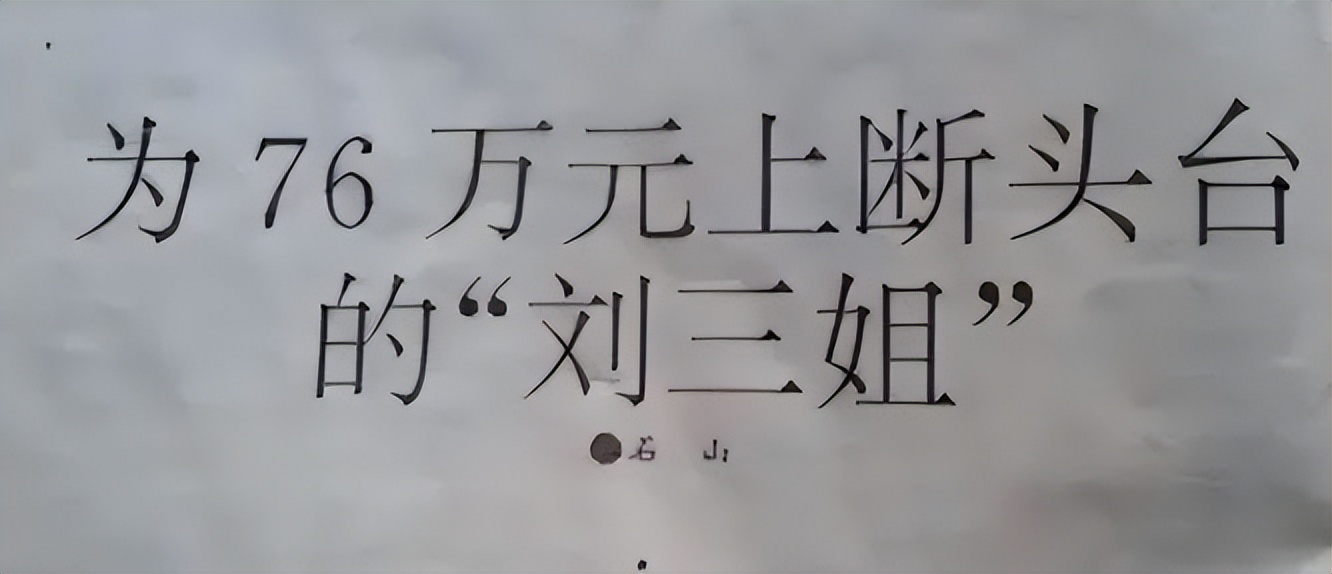 为76万元上断头台
的“刘三姐”
●石 山